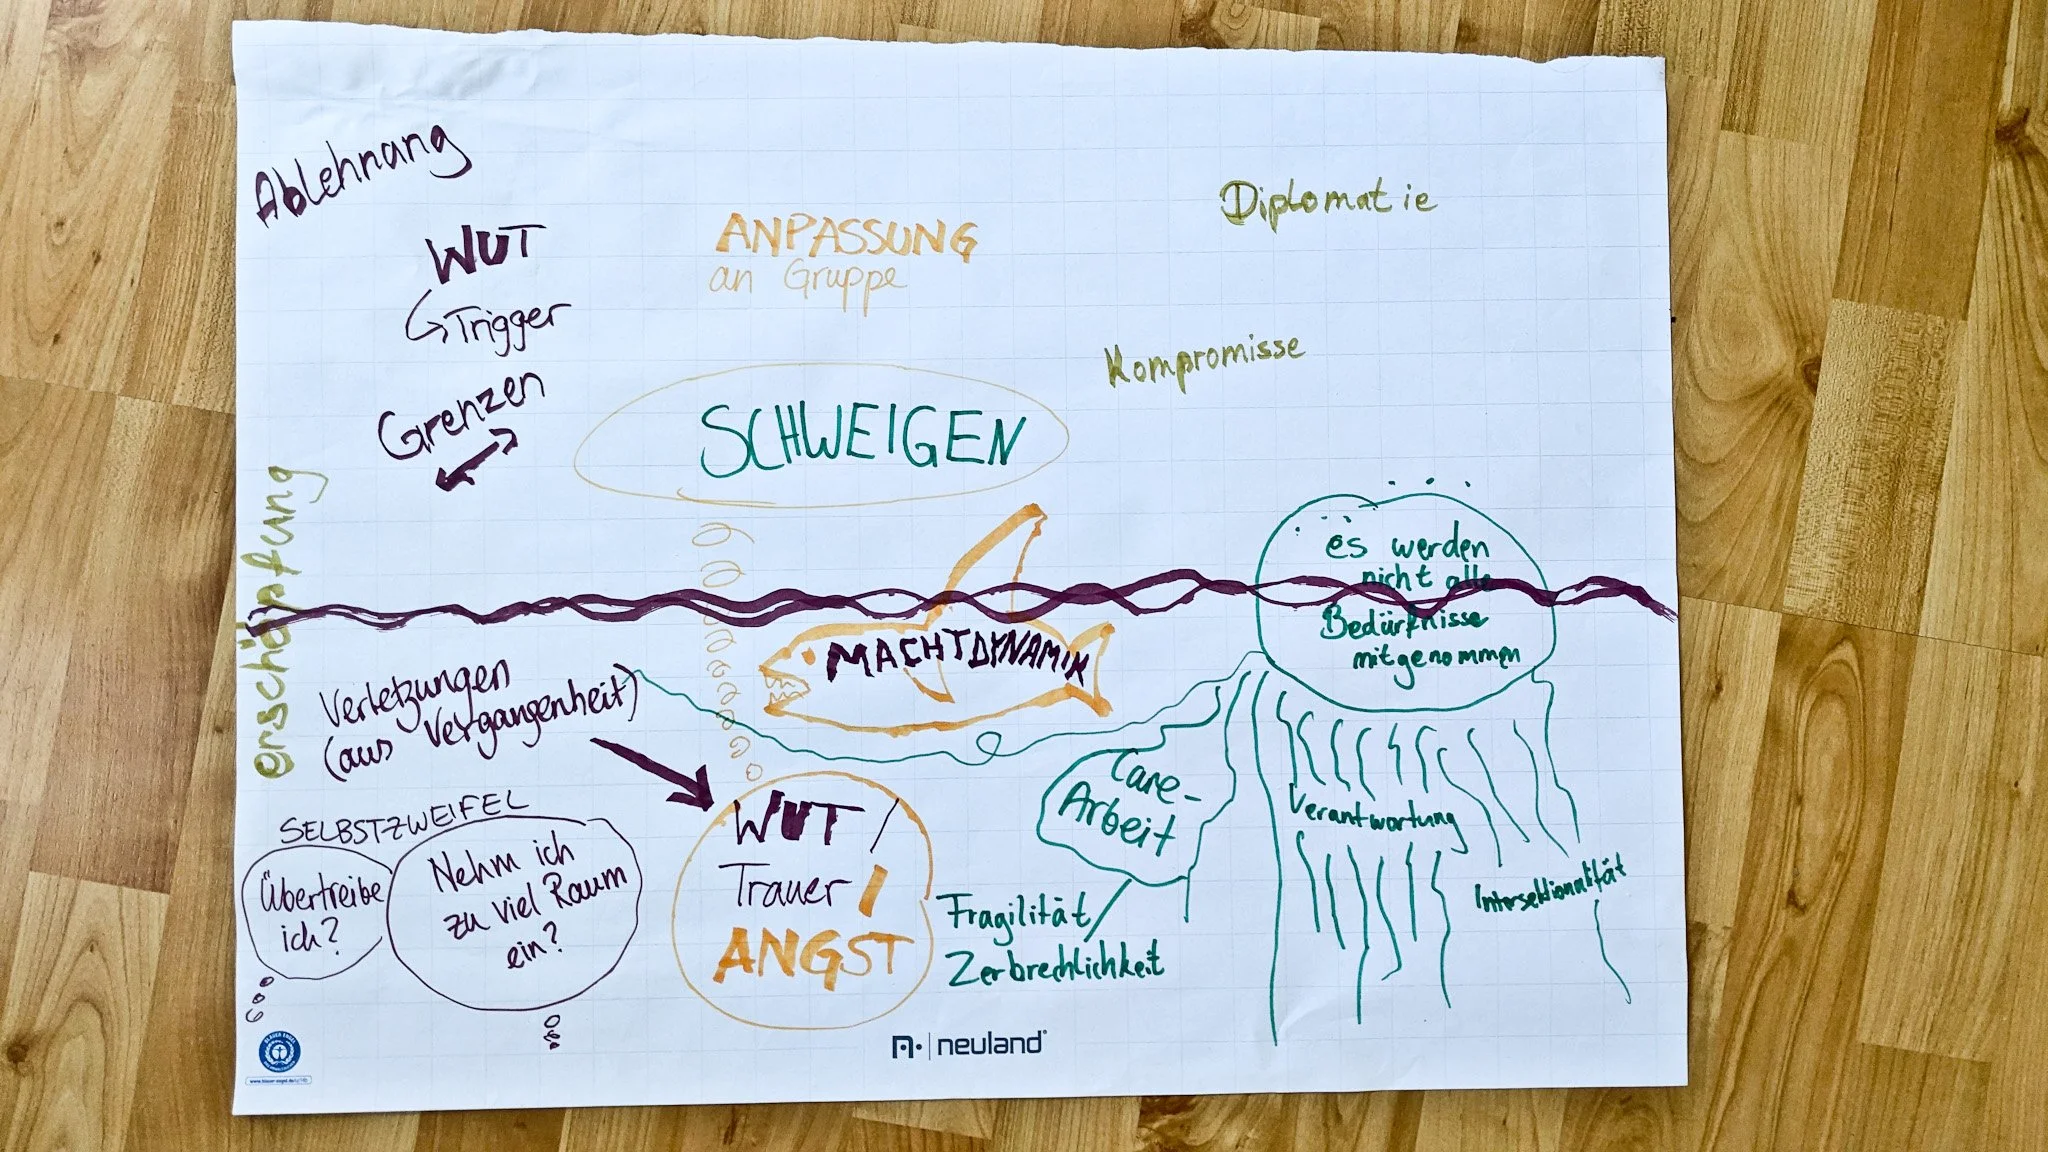 Ablehnung
WUT
Trigger
Grenzen
ANPASSUNG
an Gruppe
Diplomatie
Kompromisse
SCHWEIGEN
erschöpfung
es werden
nicht alle
Bedürfnisse
mitgenommen
MACHTDYNAMIK
Verletzungen
(aus Vergangenheit)
SELBSTZWEIFEL
Übertreibe
ich?
Nehm ich
zu viel Raum
ein?
WUT /
Trauer /
ANGST
Care-
Arbeit
Fragilität
Zerbrechlichkeit
Verantwortung
Intersektionalität
neuland
BLAUER ENGEL